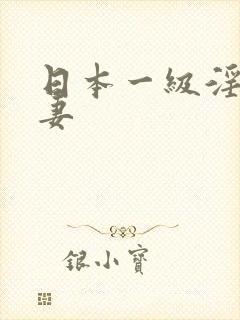 日本一級淫
妻
银小寶